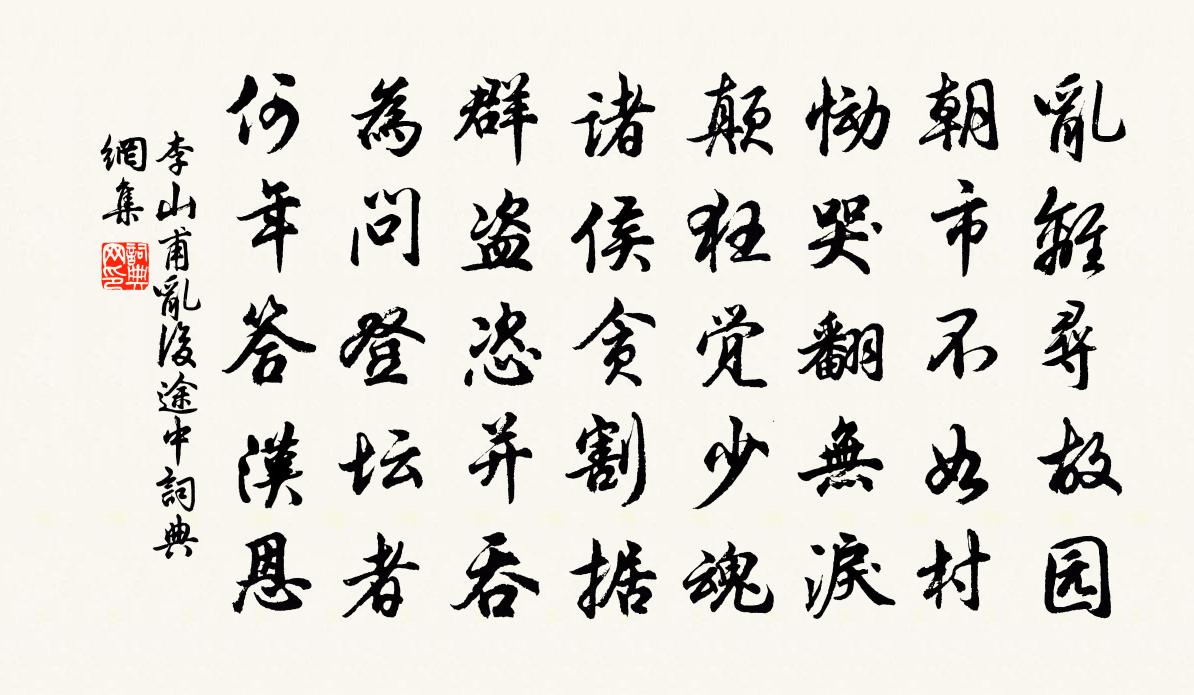 亂離尋故园
朝市不如村
恸哭翻無淚
颠狂觉少魂
诸侯贪割据
群盗恣并吞
為問登坛者
何年答漢恩
李山甫亂後途中詞典
網集
詞典
网印